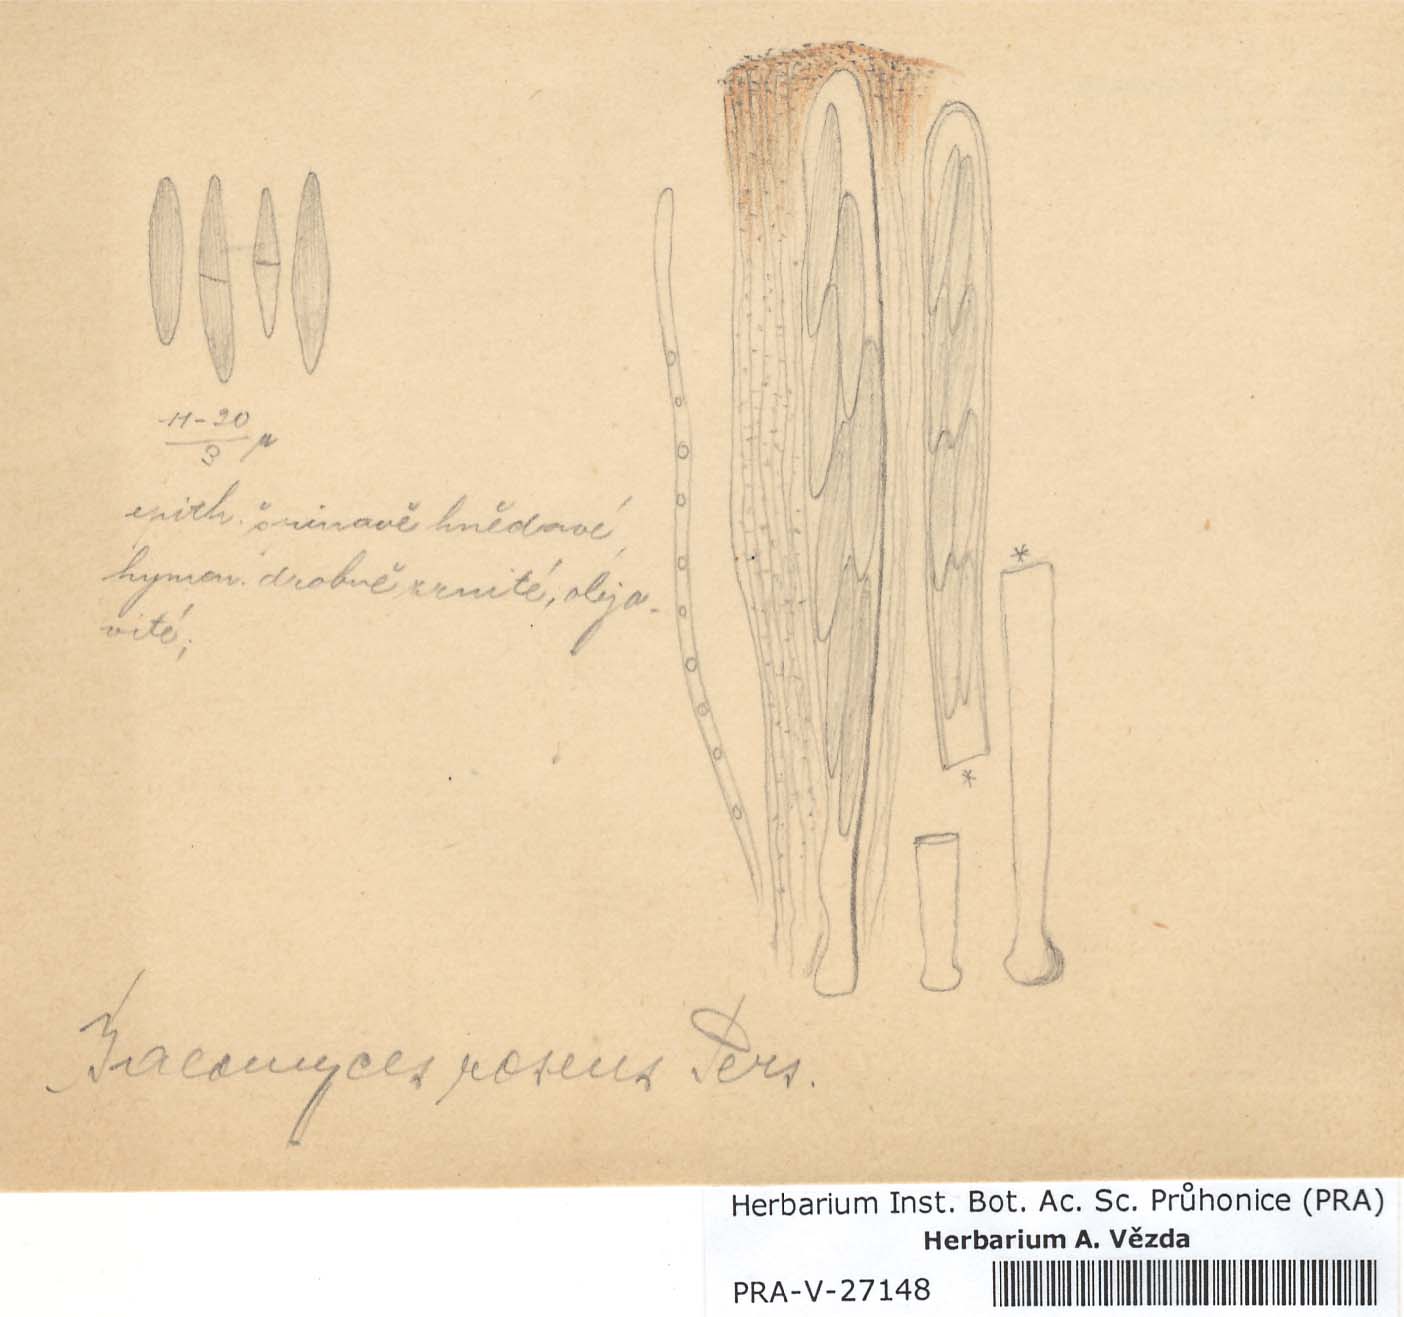 11-20
3 μ
epith. špinavě hnědavé,
hymen. drobně zrnité, olejo-
vité;
Baeomyces roseus Pers.
*
*
Herbarium Inst. Bot. Ac. Sc. Průhonice (PRA)
Herbarium A. Vězda
PRA-V-27148